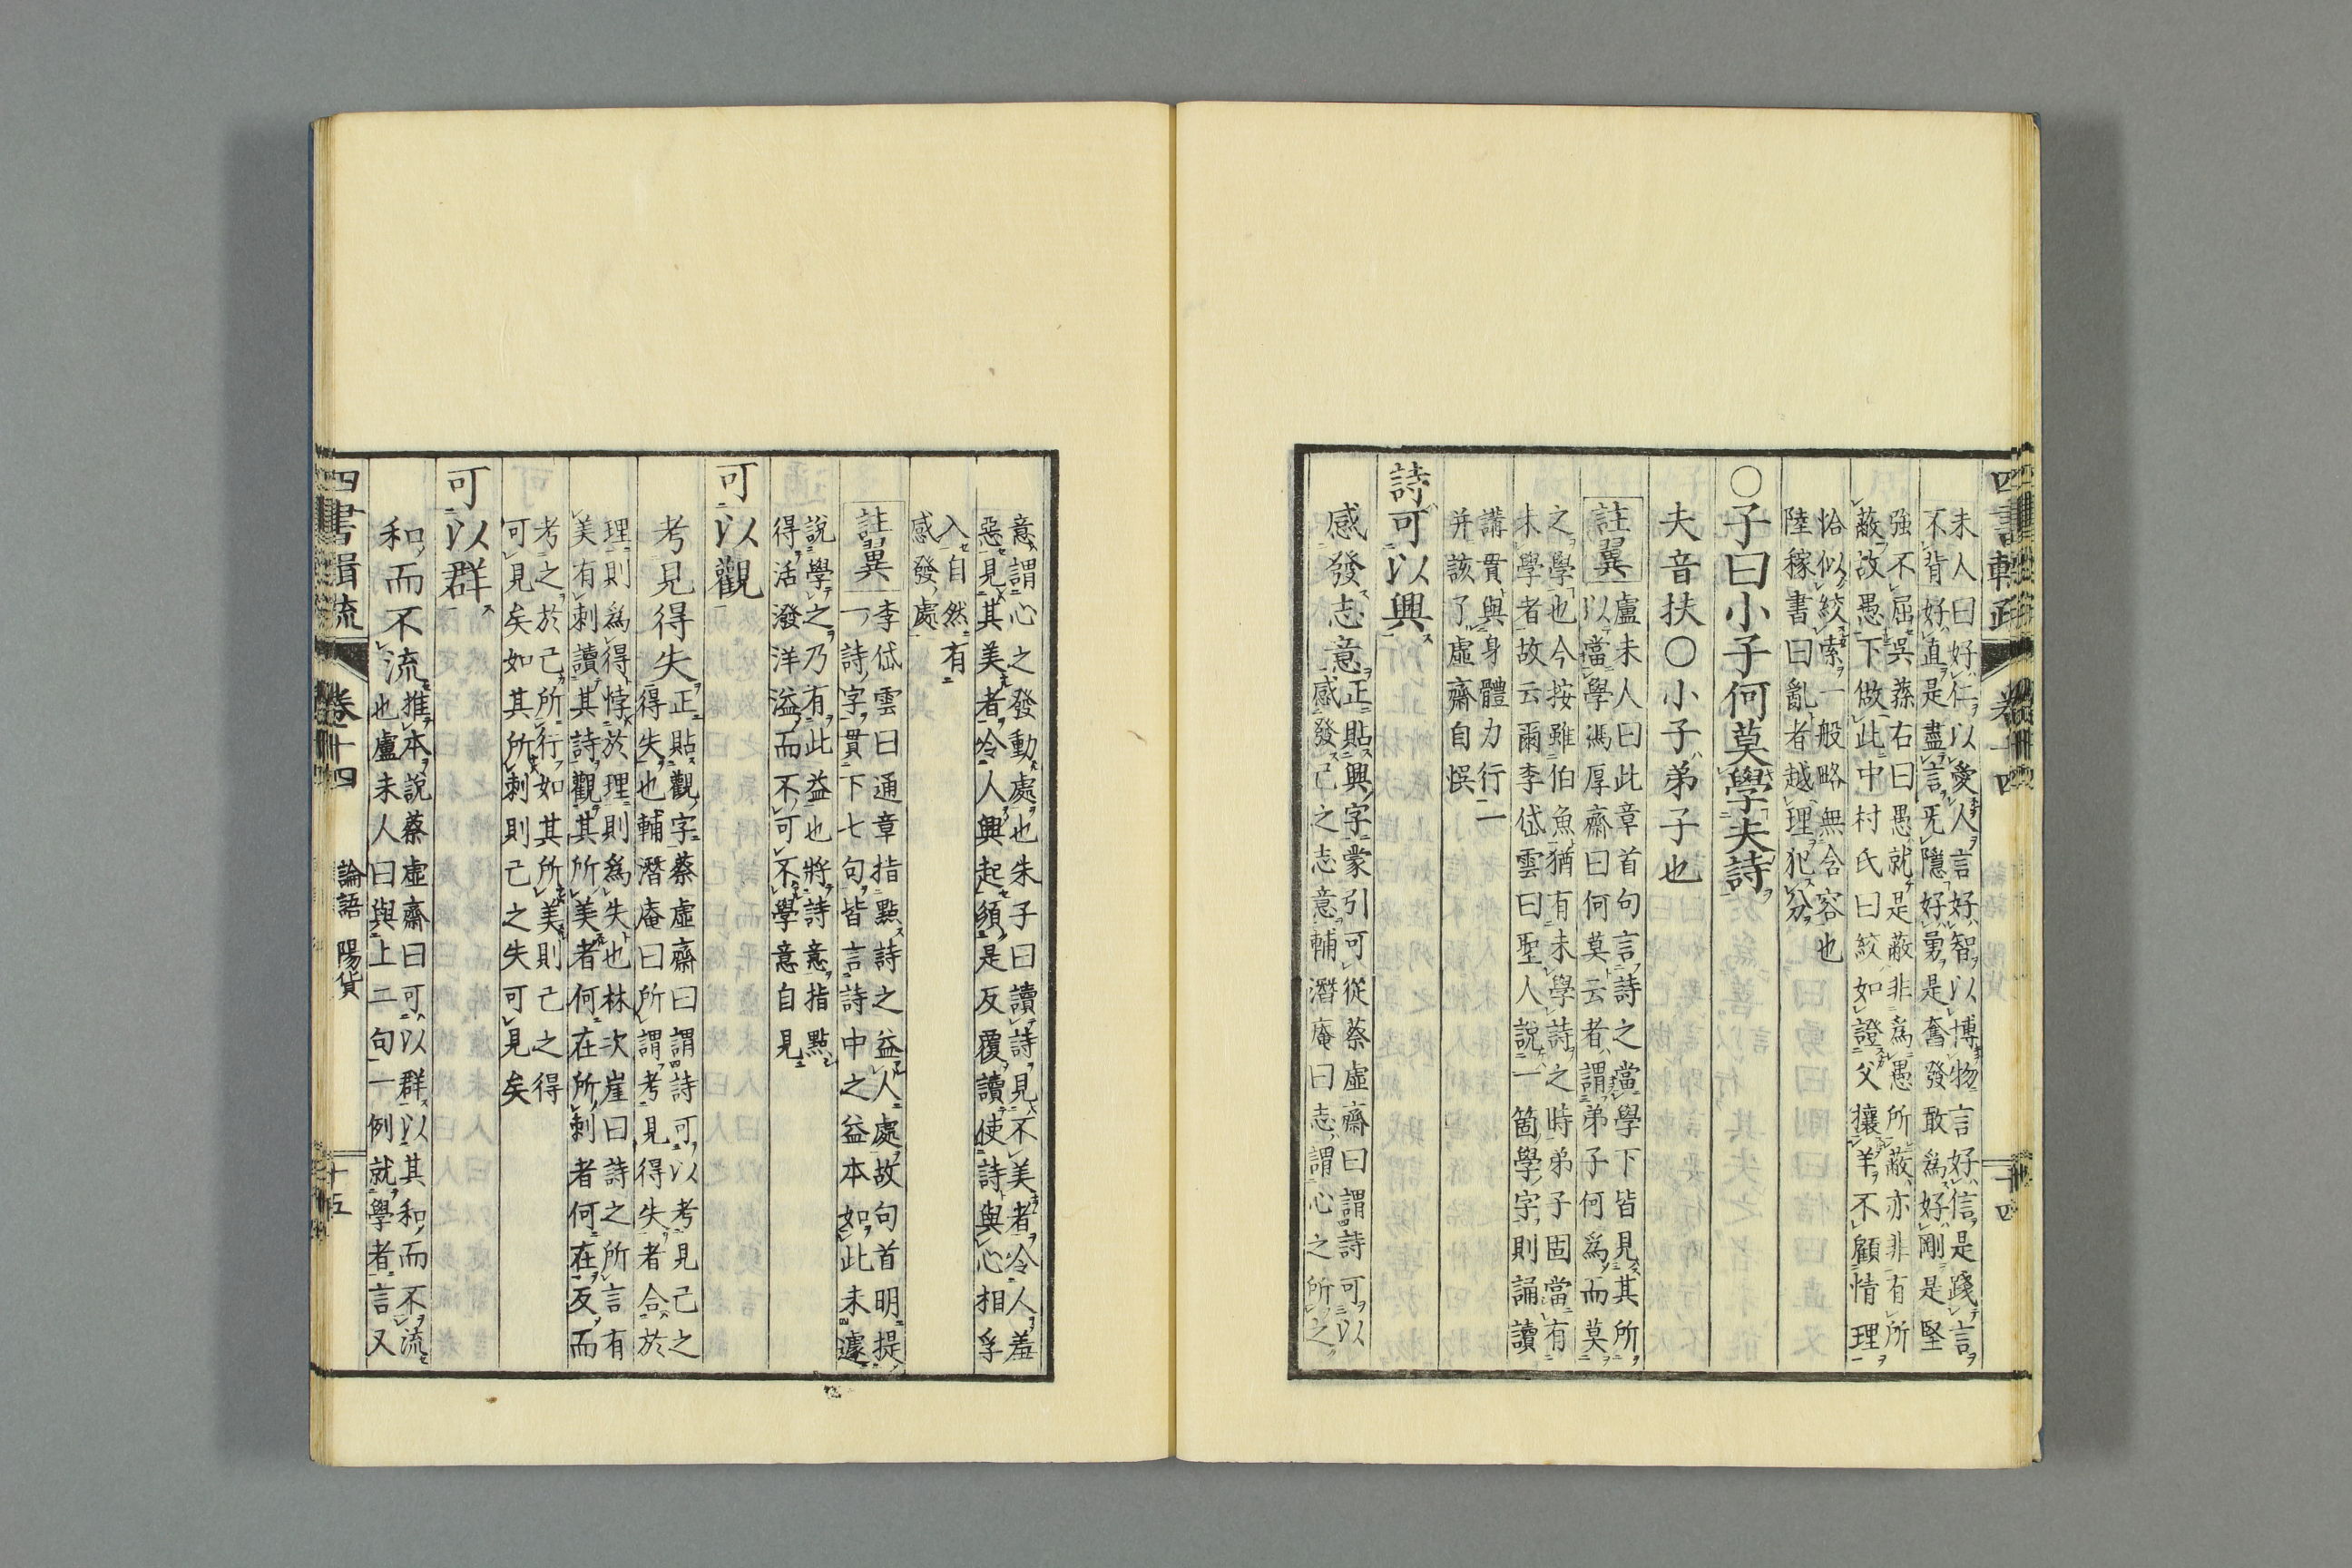 未人曰好仁以愛人言好智以博物言好信是踐言
不背好直是盡言旡隱好勇是奮發敢為好剛是堅
強不屈吳蓀右曰愚就是蔽非為愚所蔽亦非有所
蔽故愚下做此中村氏曰絞如證父攘羊不顧情理
恰似絞索一般略無含容也
陸稼書曰亂者越理犯分
○子曰小子何莫學夫詩
夫音扶○小子弟子也
註翼
盧未人曰此章首句言詩之當學下皆見其所
以當學馮厚齋曰何莫云者謂弟子何為而莫
之學也今按雖伯魚猶有未學詩之時弟子固當有
未學者故云爾李岱雲曰聖人說一箇學字則誦讀
講貫與身體力行二
并該了虛齋自悞
詩可以興
感發志意
正貼興字蒙引可從蔡虛齋曰謂詩可以
感發己之志意輔潛庵曰志謂心之所之
四書輯疏
卷十四
十四
意謂心之發動處也朱子曰讀詩見不美者令人羞
惡見其美者令人興起須是反覆讀使詩與心相孚
入自然有
感發處
註翼
李岱雲曰通章指點詩之益人處故句首明提
一詩字貫下七句皆言詩中之益本如此未遽
說學之乃有此益也將詩意指點
得活潑洋溢而不可不學意自見
可以觀
考見得失
正貼觀字蔡虛齋曰謂詩可以考見己之
得失也輔潛庵曰所謂考見得失者合於
理則為得悖於理則為失也林次崖曰詩之所言有
美有刺讀其詩觀其所美者何在所刺者何在反而
考之於己所行如其所美則己之得
可見矣如其所刺則己之失可見矣
可以群
和而不流
推本說蔡虛齋曰可以群以其和而不流
也盧未人曰與上二句一例就學者言又
四書輯疏
卷十四
論語 陽貨
十五